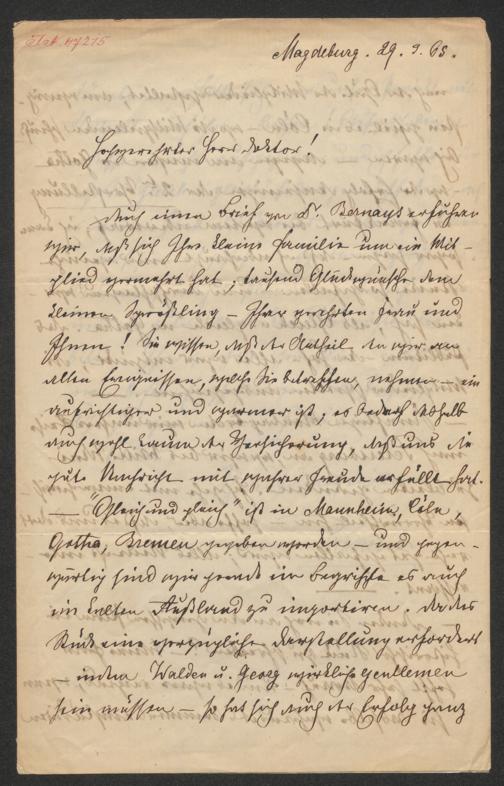 Magdeburg. 29. 9. 65.
Hochverehrter Herr Doktor!
Durch einen Brief von Dr. Bernays erfuhren
wir, daß sich Ihre kleine Familie um ein Mit-
glied vermehrt hat; tausend Glückwünsche dem
kleinen Sprößling – Ihrer geehrten Frau und
Ihnen! Sie wissen, daß der Antheil den wir an
allen Ereignissen, welche Sie betreffen, nehmen – ein
aufrichtiger und warmer ist, es bedarf deshalb
auch wohl kaum der Versicherung, daß uns die
gute Nachricht mit wahrer Freude erfüllt hat.
— "Gleich und gleich" ist in Mannheim, Cöln,
Gotha, Bremen gegeben worden – und gegen-
wärtig sind wir gerade im Begriffe es auch
im kalten Rußland zu importiren. Da das
Stück eine vorzügliche Darstellung erfordert
– indem Walden u. Georg wirkliche gentlemen
sein müssen – so hat sich auch der Erfolg ganz